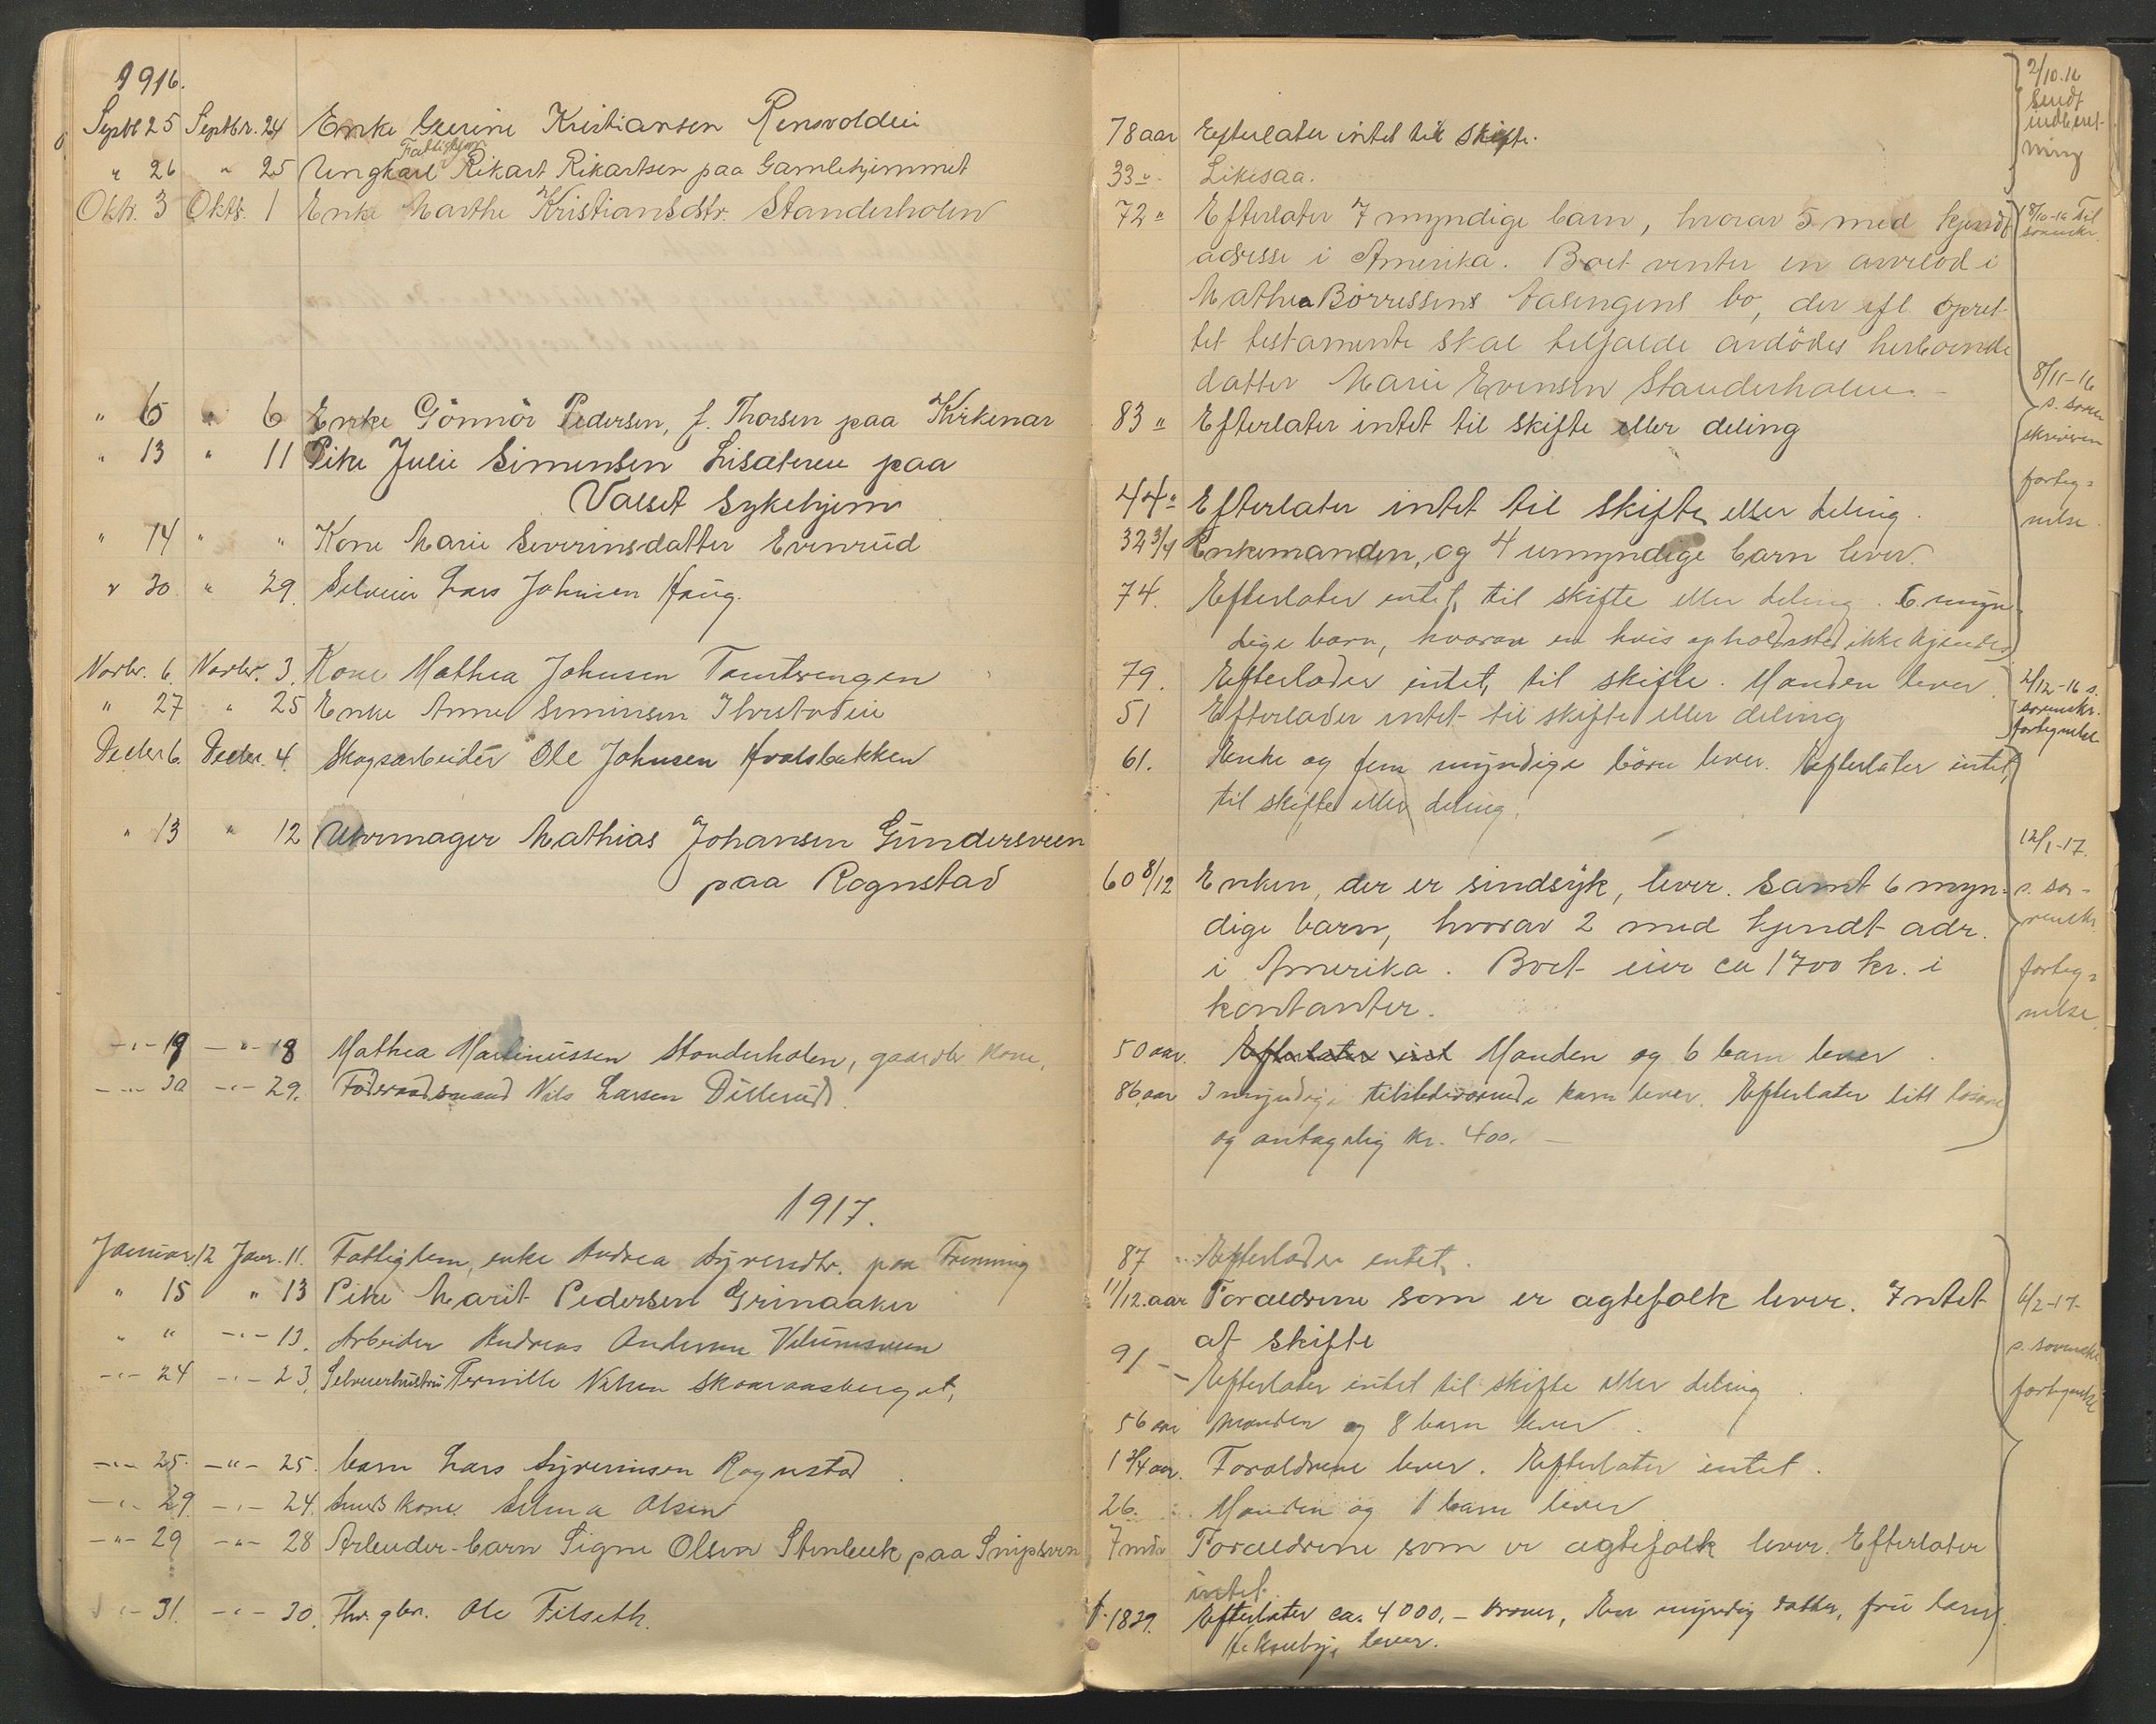 1916.
Septbr 25 Septbr. 24 Enke Gurine Kristiansen
Fattiglem
" 26 " 25 Ungkarl Rikart Rikartsen paa Gamlehjemmet
Oktr. 3 Oktr. 1 Enke Marthe Kristiansdtr. Standerholen
" 6 " 6 Enke Gönnör Pedersen, f. Thorsen paa Kirkenær
" 13 " 11 Pike Julie Simensen paa
Valset Sykehjem
" 14 " " Kone Marie Severinsdatter Evenrud
" 30 " 29. Selveier Lars Johnsen Haug.
Novbr. 6. Novbr. 3. Kone Mathea Johnsen Tomtvengen
" 27 " 25 Enke Anne Simensen
Decbr 6. Decbr. 4. Skogsarbeider Ole Johnsen Hvalsbakken
" 13 " 12 Urmager Mathias Johansen Gundersveen
paa Rognstad
-"- 19 -"- 18 Mathea Martinussen Standerholen, gaardbr. kone.
-"- 30 -"- 29. Föderaadsmand Nils Larsen Dillerud.
1917.
Januar 12 Janr. 11. Fattiglem, enke Andrea paa
" 15 " 13 Pike Marit Pedersen Grinaaker
" " -"- 13. Arbeider Andreas Andersen
-"- 24 -"- 23. Selveierhustru Pernille Nilsen
-"- 25. -"- 25. barn Lars Syverinsen Rognstad
-"- 29. -"- 24. kone. Selma Olsen
-"- 29 -"- 28 Arbeider-barn Signe Olsen Stenbæk paa Snipsven
-"- 31. -"- 30. gbr. Ole Filseth.
78 aar Efterlater intet til Skifte.
33 " Likesaa.
72 " Efterlater 7 myndige barn, hvorav 5 med kjendt
adresse i Amerika. Boet venter en arvelod i
Mathea Börressens bo, der efl. opret-
tet testamente skal tilfalde avdödes herboende
datter Marie Evensen Standerholen. -
83 " Efterlater intet til skifte eller deling
44 " Efterlater intet til skifte eller deling.
32 3/4 Enkemanden, og 4 umyndige barn lever.
74. Efterlater intet, til skifte eller deling. 6 myn-
dige barn, hvorav en hvis opholdssted ikke kjendes
79. Efterlader intet, til skifte. Manden lever.
51 Efterlader intet til skifte eller deling
61. Enke og fem myndige börn lever. Efterlater intet
til skifte eller deling.
60 8/12 Enken, der er sindsyk, lever. Samt 6 myn-
dige barn, hvorav 2 med kjendt adr.
i Amerika. Boet eier ca 1700 kr. i
kontanter.
50 aar. Efterlater intet Manden og 6 barn lever.
86 aar 3 myndige tilstedeværende barn lever. Efterlater litt
og antagelig kr. 400. -
87 Efterlader intet.
11/12. aar Forældrene som er ægtefolk lever. Intet
at skifte
91 - Efterlater intet til skifte eller deling.
56 aar Manden og 8 barn lever.
1 3/4 aar. Forældrene lever. Efterlater intet.
26. Manden og 1 barn lever
7 mdr Forældrene som er ægtefolk lever. Efterlater
intet.
f. 1839. Efterlater ca. 4000,- kroner, En myndig datter, fru
lever.
2/10.16
sendt
indberet-
ning
18/10-16 Til
sorenskr.
8/11-16
s. soren
skriveren
forteg=
nelse.
2/12-16 s.
sorenskr.
fortegnelse
12/1-17.
s. so-
renskr.
forteg=
nelse.
6/2-17-
s. sorenskr.
fortegnelse